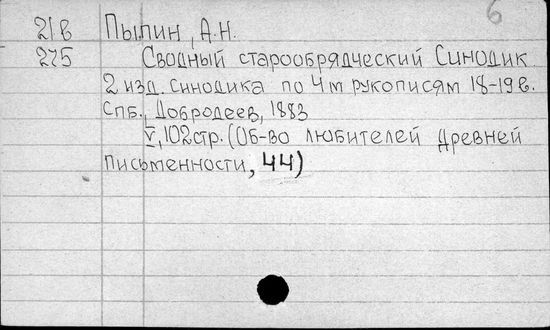 6
21в Пыпин, А.Н.
275 Сводный старообрядческий Синодик
2 изд. синодика по 4м рукописям 18-19в.
Спб., Добродеев, 1883
V, 102 стр. (Об-во любителей древней
письменности, 44)